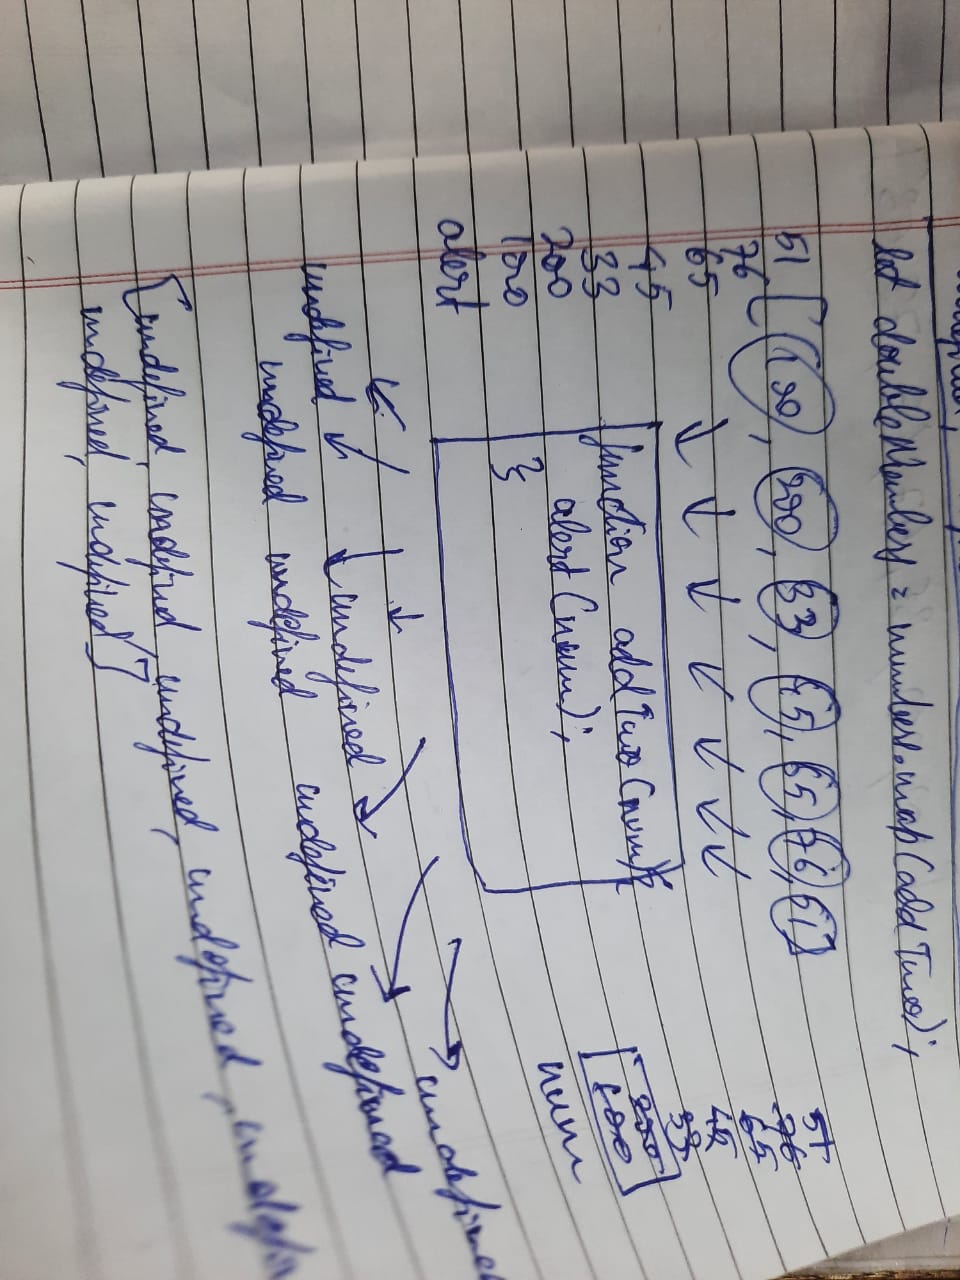 let doubleNumbers = numbers.map(addTwo);
[100, 200, 33, 45, 65, 76, 51]
51
76
65
45
33
200
100
alert
function addTwo(num){
alert(num);
}
51
76
65
45
33
200
100
num
undefined undefined undefined
undefined undefined undefined undefined
[undefined, undefined, undefined, undefined,
undefined, undefined]